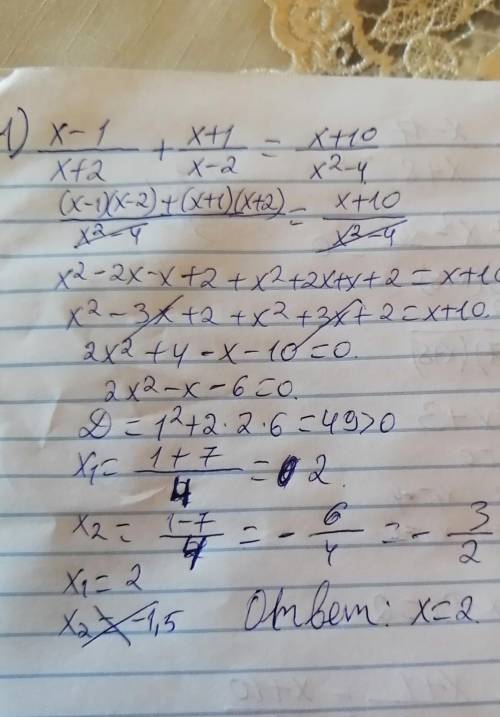 1) (x-1)/(x+2) + (x+1)/(x-2) = (x+10)/(x²-4)
((x-1)(x-2)+(x+1)(x+2))/(x²-4) = (x+10)/(x²-4)
x²-2x-x+2+x²+2x+x+2=x+10
x²-3x+2+x²+3x+2=x+10.
2x²+4-x-10=0.
2x²-x-6=0.
D=1²+2·2·6=49>0
x₁=(1+7)/4=2.
x₂=(1-7)/4=-6/4=-3/2
x₁=2
x₂=-1,5 Ответ: x=2.